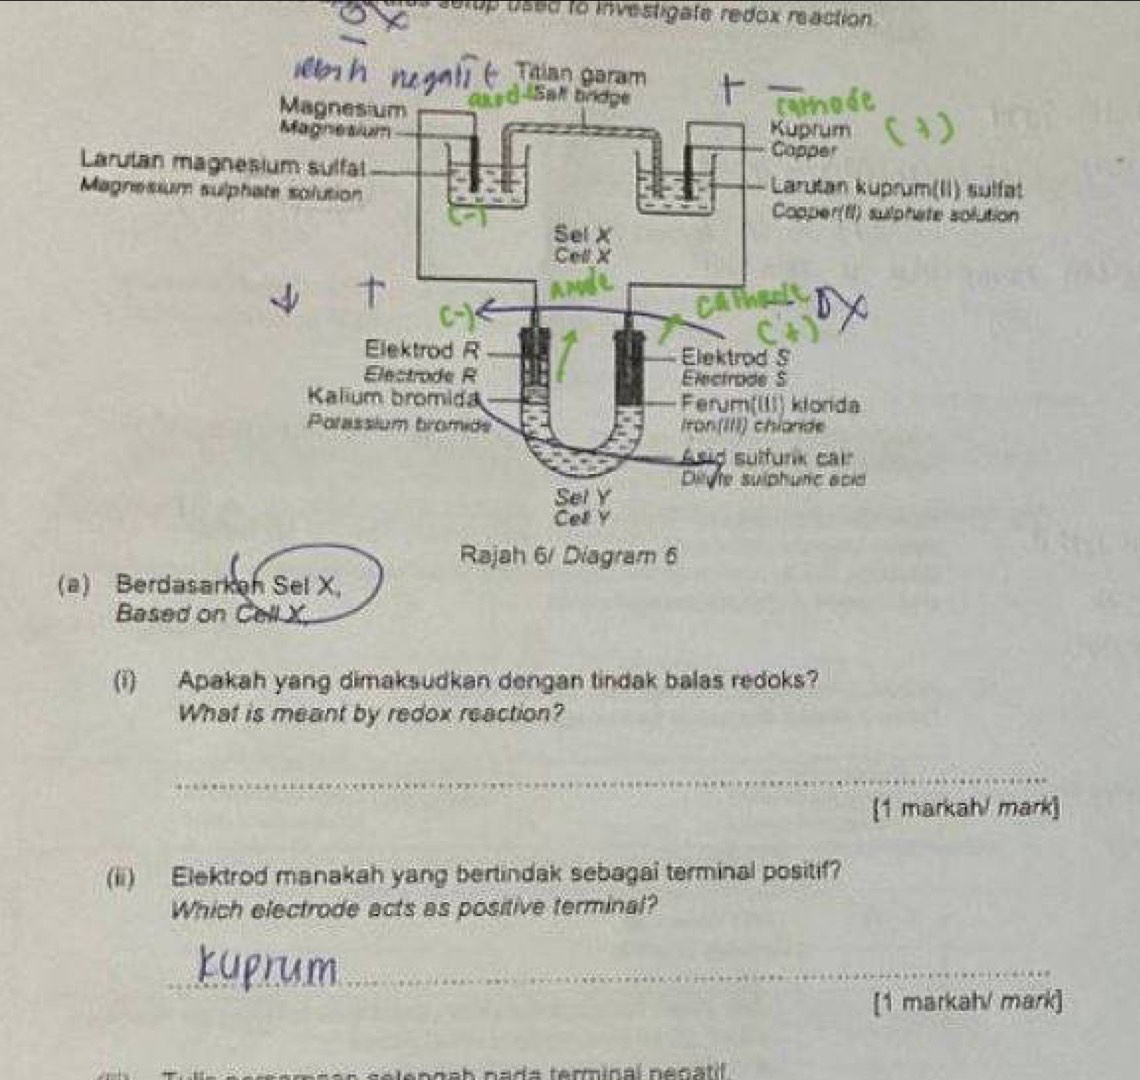 setup used to investigate redox reaction.
OX
lebih negatif
Titian garam
Salt bridge
+ −
anode
cathode
(+)
Magnesium
Magnesium
Kuprum
Copper
Larutan magnesium sulfat
Magnesium sulphate solution
Larutan kuprum(II) sulfat
Copper(II) sulphate solution
(-)
Sel X
Cell X
+
Anode
Cathode
OX
(-)
(+)
Elektrod R
Electrode R
Elektrod S
Electrode S
Kalium bromida
Potassium bromide
Ferum(III) klorida
Iron(III) chloride
Asid sulfurik cair
Dilute sulphuric acid
Sel Y
Cell Y
Rajah 6/ Diagram 6
(a) Berdasarkan Sel X,
Based on Cell X,
(i) Apakah yang dimaksudkan dengan tindak balas redoks?
What is meant by redox reaction?
[1 markah/ mark]
(ii) Elektrod manakah yang bertindak sebagai terminal positif?
Which electrode acts as positive terminal?
kuprum
[1 markah/ mark]
(iii) Tulis persamaan setengah pada terminal negatif.